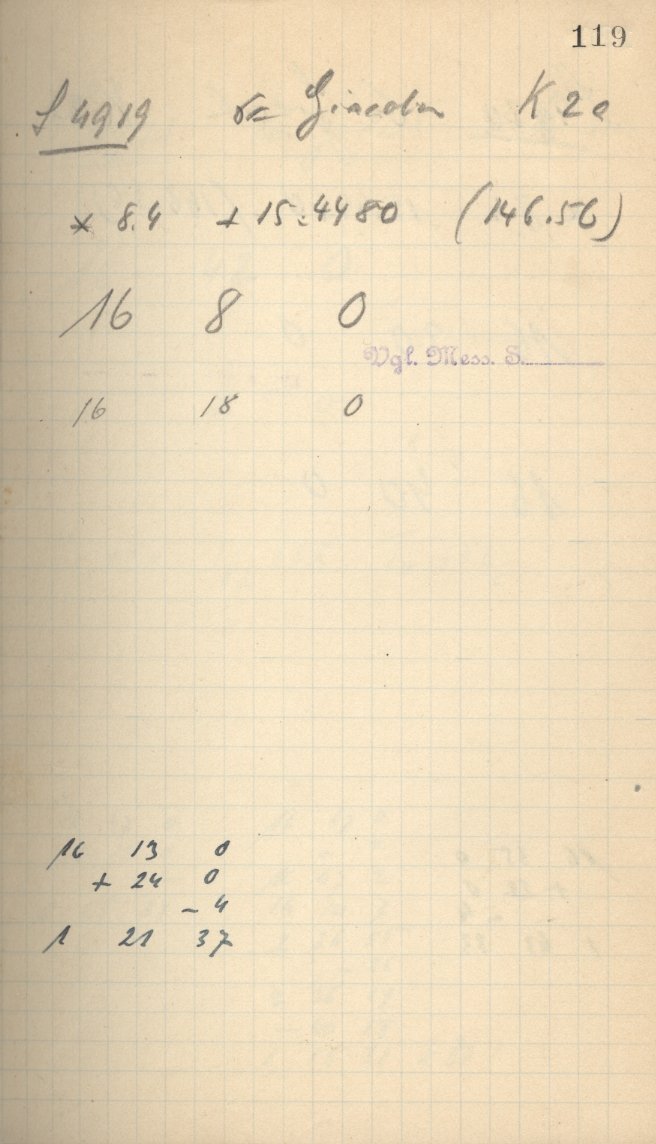 119
S 4919 Giacobin K 2e
× 8.4 + 15:4480 (146.56)
16 8 0
Vgl. Mess. S.
16 18 0
16 13 0
+ 24 0
- 4
1 21 37